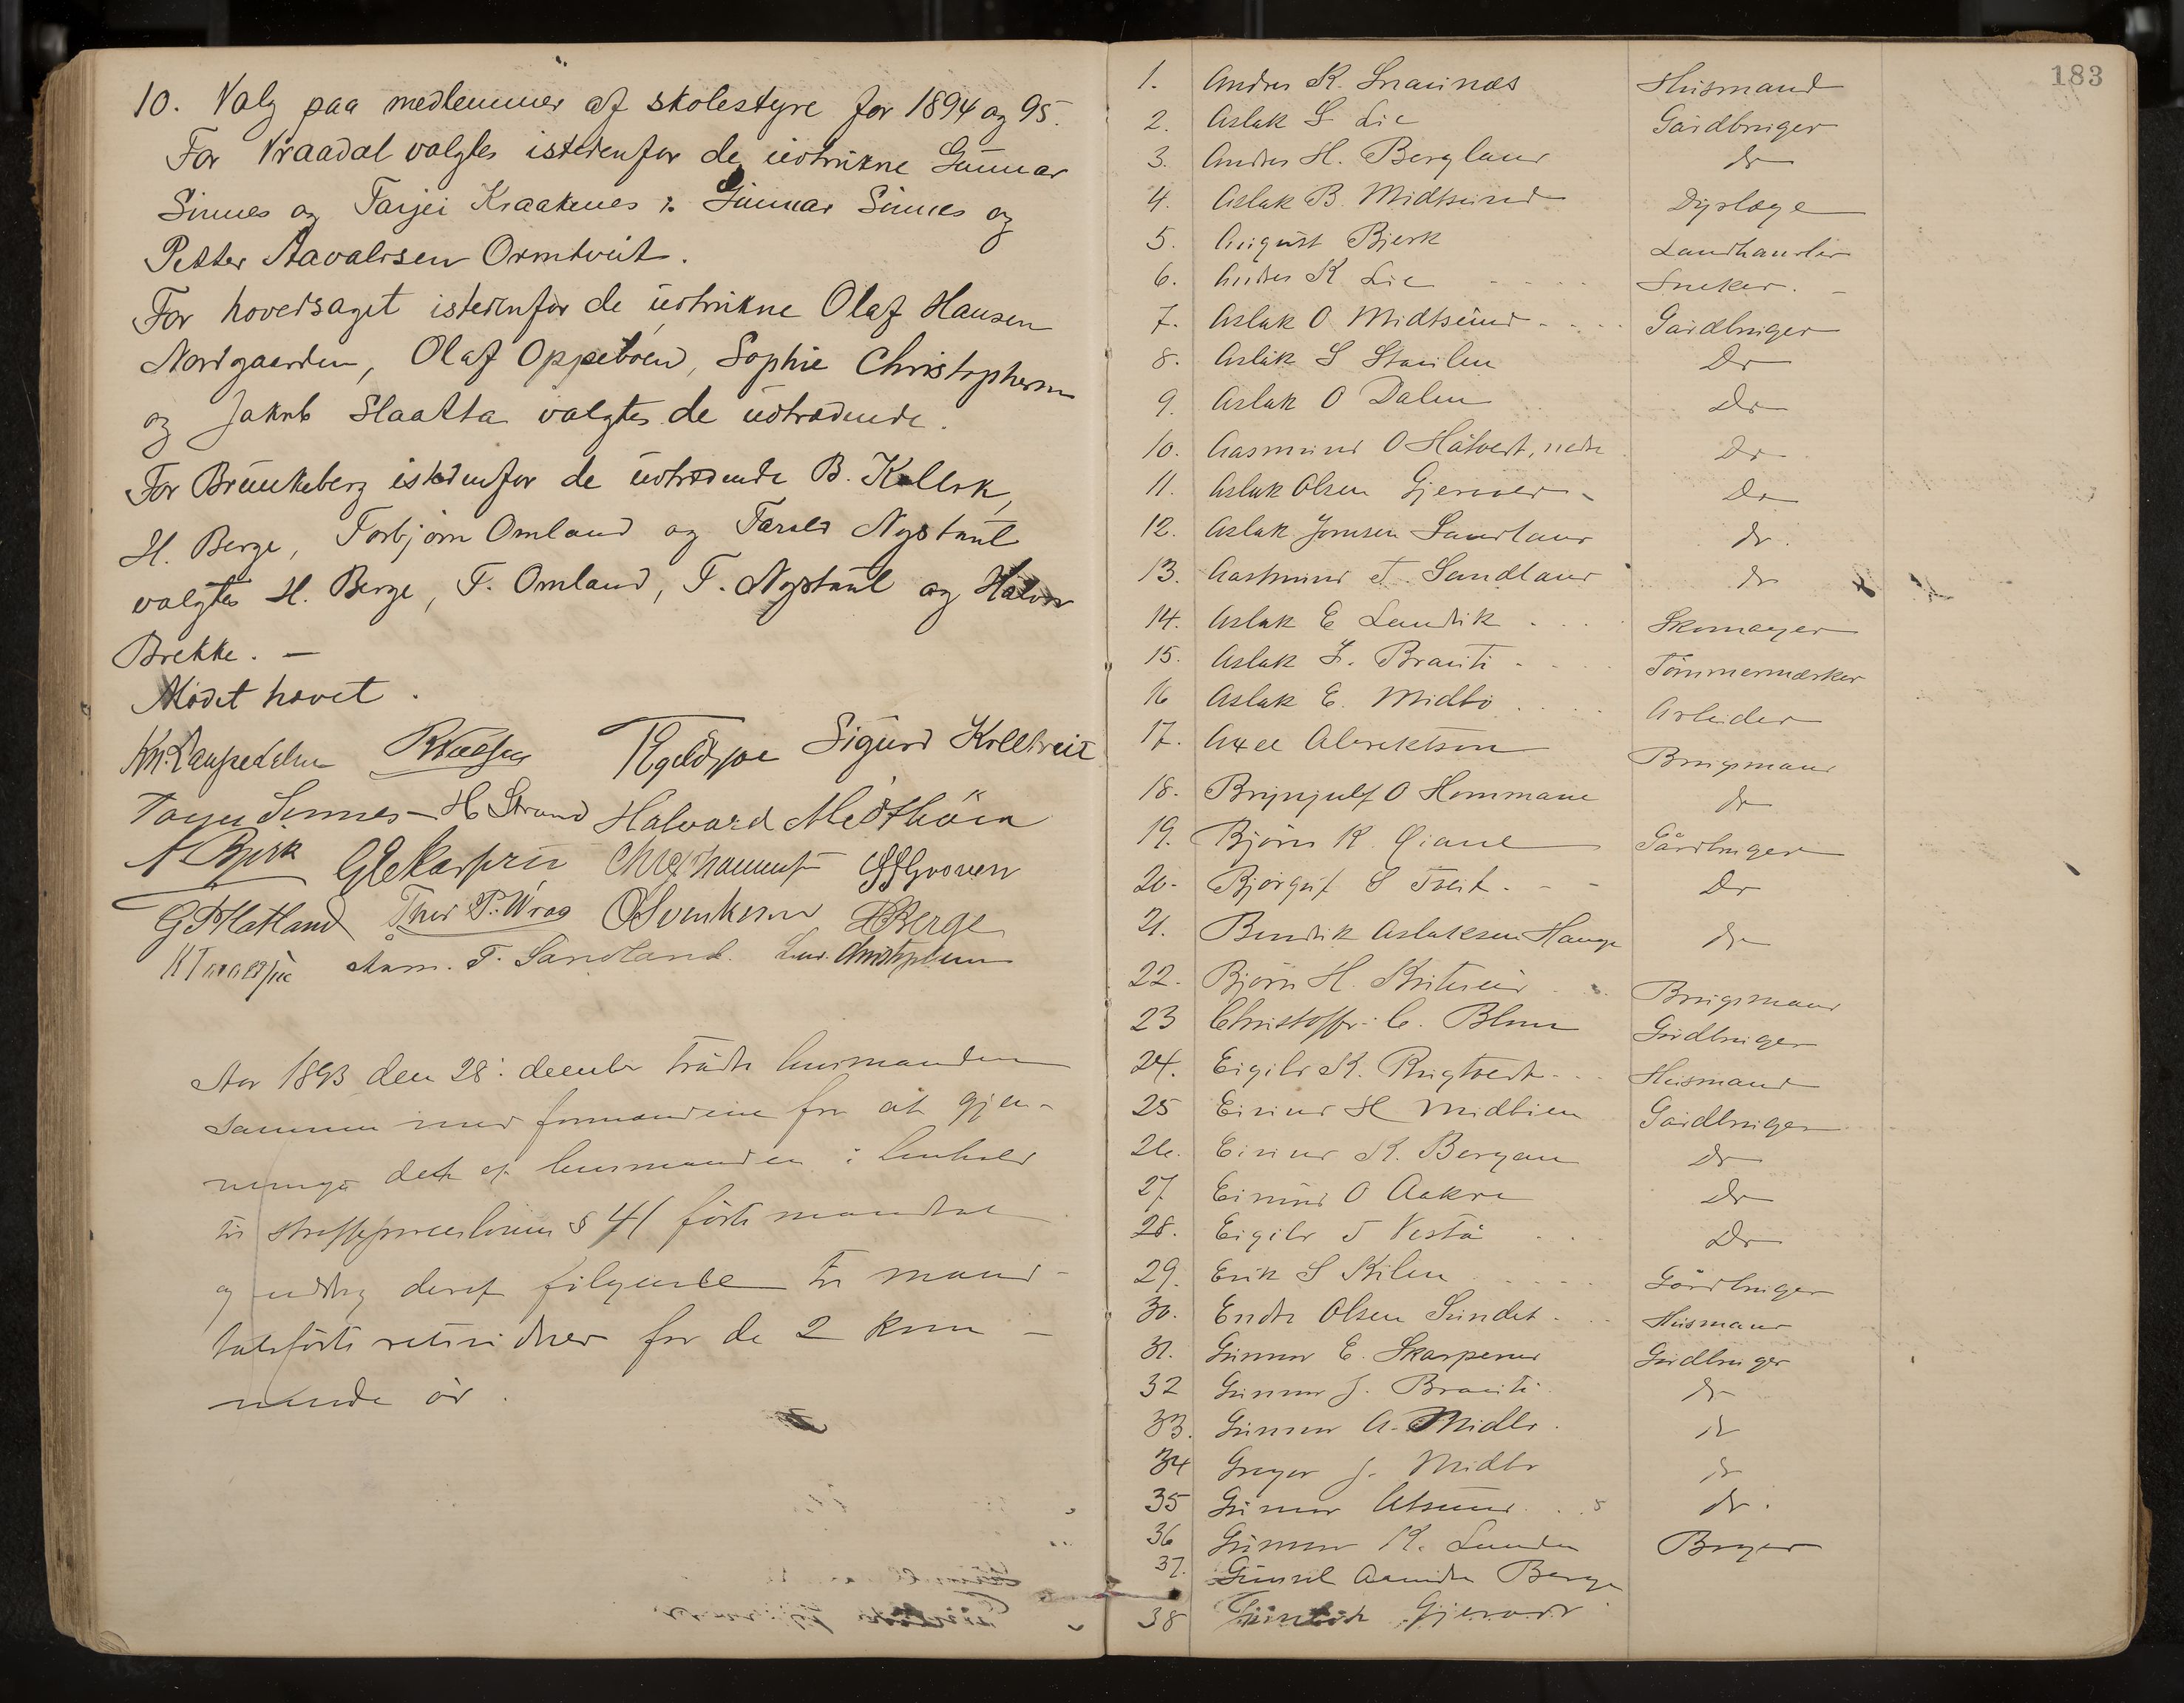 10. Valg paa medlemmer af skolestyre for 1894 og 95.
For Vraadal valgtes istedenfor de udtrukne Gunnar
Sinnes og Tarjei Kraakenes : Gunnar Sinnes og
Petter Aavaldsen Ormtveit.
For hovedsognet istedenfor de udtrukne Olaf Hansen
Nordgaarden, Olaf Oppeboen, Sophie Christophersen
og Jakob Slaatta valgtes de udtrædende.
For Brunkeberg istedenfor de udtrædende B. Kollerk,
H. Berge, Torbjørn Omland og Tarald Nystaul
valgtes H. Berge, T. Omland, T. Nystaul og Halvor
Brekke. —
Mødet hævet.
Sigurd Kolltveit
H Strand Halvard Midtbøen
A Bjerk
G Hatland Thor P. Wraa O Svenkerud H Berge
Aasm. T. Sandland. Ludv. Christophersen
Aar 1893 den 28: december traadte lensmanden
sammen med formændene for at gjen-
nemgå det af lensmanden i henhold
til straffeproceslovens § 41 førte mandtal
og udtog deraf følgende til mand-
talsførte retsvidner for de 2 kom-
mende år.
183
1. Andres K. Snarinæs Husmand
2. Aslak S Lie Gårdbruger
3. Andres H. Bergland do
4. Aslak B. Midtsund Dyrlæge
5. August Bjerk Landhandler
6. Andres K Lie Sneker. -
7. Aslak O. Midtsund Gårdbruger
8. Aslak S Staulen Do
9. Aslak O Dalen Do
10. Aasmund O Håtveit, nedre Do
11. Aslak Olsen Gjernes Do
12. Aslak Jonsen Sandland do.
13. Aasmund T. Sandland do
14. Aslak E Landvik Skomager
15. Aslak G. Brauti Tømmermærker
16 Aslak E. Midbø Arbeider
17. Axel Albrektson Brugsmand
18. Brynjulf O Hommane do
19. Bjørn K. Gårdbruger
20. Bjørguf S Tveit. Do
21. Bendik Aslaksen Hauge do
22. Bjørn H. Brugsmand
23 Christoffer C. Blom Gårdbruger
24. Eigild K. Rugtveit Husmand
25 Eivind H Midbøen Gårdbruger
26. Eivind K. Bergan Do
27 Eivind O Aakre Do
28. Eigild J Vestå Do
29. Erik S Kilen Gårdbruger
30. Endre Olsen Sundet. Husmand
31. Gunnar E. Skarperud Gårdbruger
32 Gunnar J. Brauti do
33. Gunnar A. Midbø. do
34 Greger J. Midbø do
35 Gunnar Utsund do.
36 Gunnar K. Lunden Bager
37. Gunvel Aamdre Berge
38 Gjernes